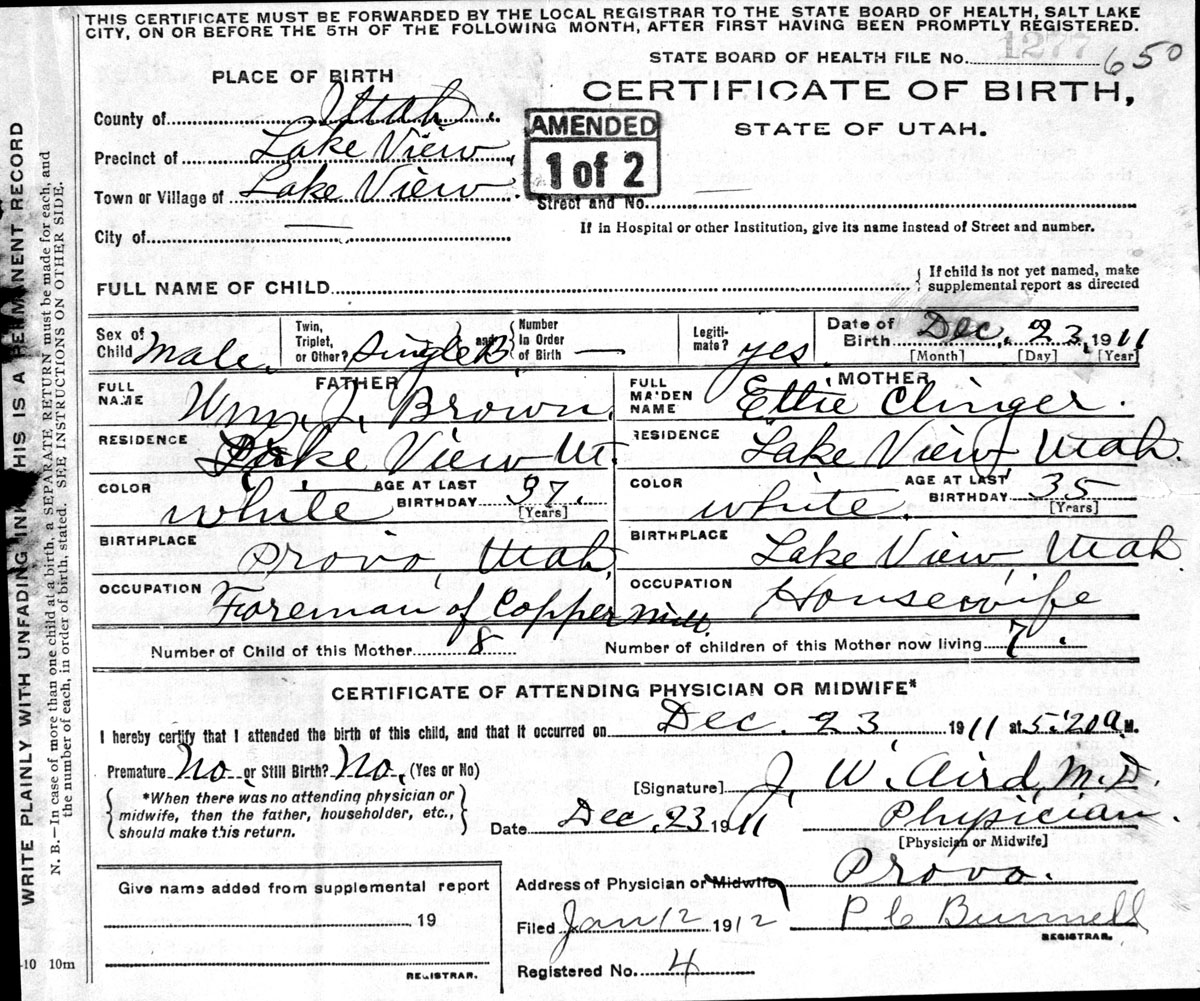 THIS CERTIFICATE MUST BE FORWARDED BY THE LOCAL REGISTRAR TO THE STATE BOARD OF HEALTH, SALT LAKE
CITY, ON OR BEFORE THE 5TH OF THE FOLLOWING MONTH, AFTER FIRST HAVING BEEN PROMPTLY REGISTERED.
1277
STATE BOARD OF HEALTH FILE No. 650
PLACE OF BIRTH
CERTIFICATE OF BIRTH,
STATE OF UTAH.
County of Utah
AMENDED
1 of 2
Precinct of Lake View
Town or Village of Lake View
Street and No.
City of
If in Hospital or other Institution, give its name instead of Street and number.
FULL NAME OF CHILD
If child is not yet named, make
supplemental report as directed
Sex of
Child Male.
Twin,
Triplet,
or Other? Single B
and
Number
in Order
of Birth —
Legiti-
mate? yes
Date of
Birth Dec. 23, 1911
[Month] [Day] [Year]
FATHER
FULL
NAME Wm. J. Brown.
RESIDENCE Lake View Ut.
COLOR White
AGE AT LAST
BIRTHDAY 37.
[Years]
BIRTHPLACE Provo, Utah,
OCCUPATION Foreman of Copper Mill.
MOTHER
FULL
MAIDEN
NAME Ettie Clinger.
RESIDENCE Lake View, Utah.
COLOR White.
AGE AT LAST
BIRTHDAY 35
[Years]
BIRTHPLACE Lake View, Utah
OCCUPATION Housewife
Number of Child of this Mother 8
Number of children of this Mother now living 7.
CERTIFICATE OF ATTENDING PHYSICIAN OR MIDWIFE*
I hereby certify that I attended the birth of this child, and that it occurred on Dec. 23 1911 at 5:20 a.M.
Premature No or Still Birth? No. (Yes or No)
*When there was no attending physician or
midwife, then the father, householder, etc.,
should make this return.
[Signature] J. W. Aird, M.D.
Date Dec. 23 1911
Physician.
[Physician or Midwife]
Give name added from supplemental report
19
REGISTRAR.
Address of Physician or Midwife Provo.
Filed Jan 12 1912
P C Bunnell
REGISTRAR.
Registered No. 4
-10 10m
WRITE PLAINLY WITH UNFADING INK THIS IS A PERMANENT RECORD
N. B.—In case of more than one child at a birth, a SEPARATE RETURN must be made for each, and
the number of each, in order of birth, stated. SEE INSTRUCTIONS ON OTHER SIDE.